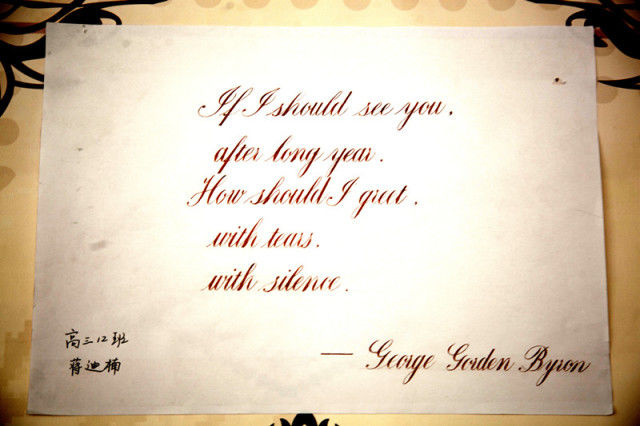 If I should see you,
after long year.
How should I greet,
with tears.
with silence.
— George Gorden Byron
高三12班
蒋迪楠